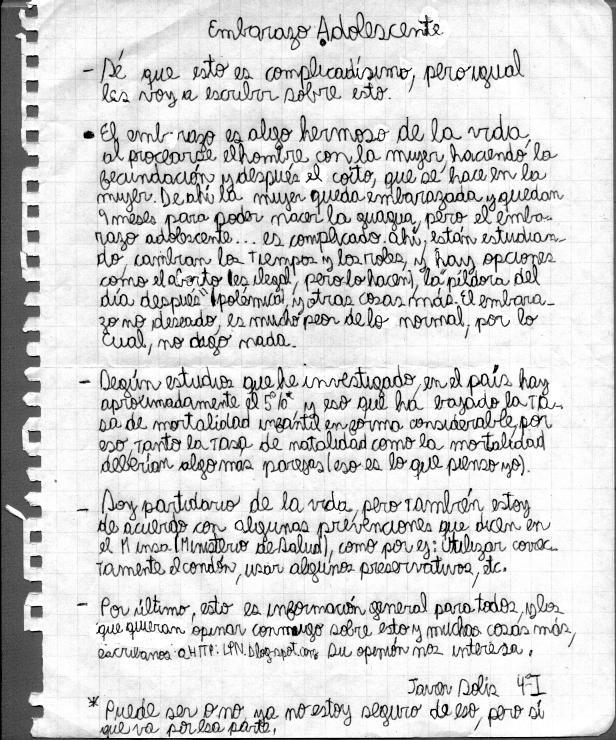 Embarazo Adolescente
- Sé que esto es complicadísimo, pero igual
les voy a escribir sobre esto.
• El emb razo es algo hermoso de la vida,
al procearse el hombre con la mujer, haciendo la
fecundación y después el coito, que se hace en la
mujer. De ahí la mujer queda embarazada y quedan
9 meses para poder nacer la guagua, pero el emba-
razo adolescente... es complicado. ahí, están estudian-
do, cambian los tiempos y los roles, y hay opciones
como el aborto (es ilegal, pero lo hacen), la "píldora del
día después" (polémica), y otras cosas más. El embara-
zo no deseado, es mucho peor de lo normal, por lo
cual, no digo nada.
- Según estudios que he investigado, en el país hay
aproximadamente el 5%* y eso que ha bajado la ta-
sa de mortalidad infantil en forma considerable, por
eso tanto la tasa de natalidad como la mortalidad
deberían algo mas parejas (eso es lo que pienso yo).
- Soy partidario de la vida, pero también estoy
de acuergo con algunas prevenciones que dicen en
el Minsa (Ministerio de Salud), como por ej: Utilizar correc-
tamente el condón, usar algunos preservativos, etc.
- Por último, esto es información general para todos, y los
que quieran opinar conmigo sobre esto y muchas cosas más,
escribanos a HTTP: LPN.blogspot.com Su opinión nos interesa.
Javier Solis 4°I
* Puede ser o no ya no estoy seguro de eso, pero sí
que va por esa parte.